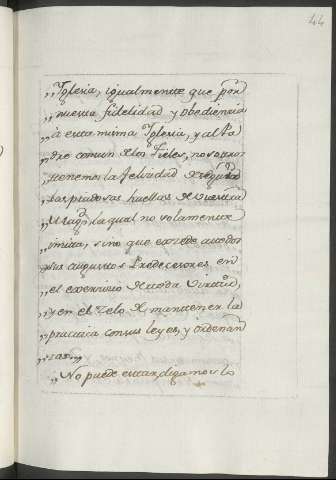 44
,, Yglesia, igualmente que por
,, nuestra fidelidad y obediencia
,, à esta misma Yglesia, y al Pa
,, dre comun de los Fieles, nosotros
,, tenemos la felicidad de seguir
,, las piadosas huellas de Vuestra
,, Mag.d la qual no solamente
,, imita, sino que excede a todos
,, sus augustos Predecesores en
,, el exercicio de toda Virtud,
,, y en el zelo de mantener la
,, practica con sus leyes, y ordenan
,, zas.,,
,, No puede estar, digamos lo